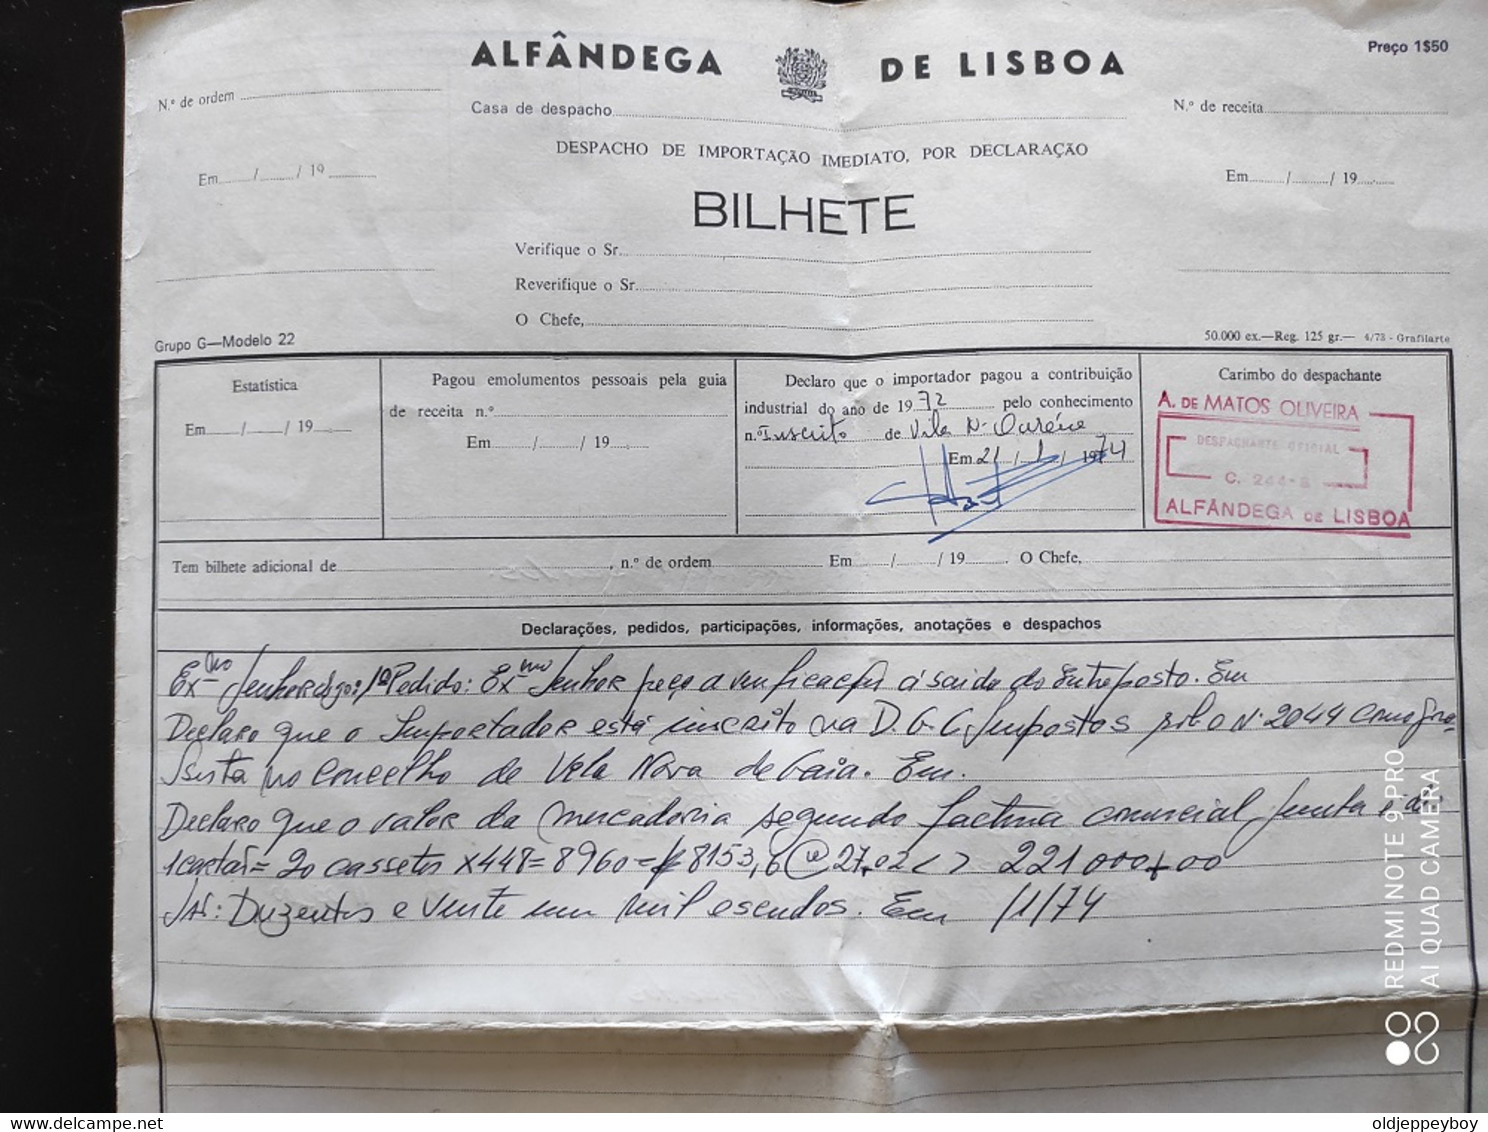 ALFÂNDEGA DE LISBOA
Preço 1$50
N.º de ordem
Casa de despacho
N.º de receita
DESPACHO DE IMPORTAÇÃO IMEDIATO, POR DECLARAÇÃO
Em / / 19
Em / / 19
BILHETE
Verifique o Sr.
Reverifique o Sr.
O Chefe,
Grupo G—Modelo 22
50.000 ex.—Reg. 125 gr.— 4/73 - Grafilarte
Estatística
Em / / 19
Pagou emolumentos pessoais pela guia
de receita n.º
Em / / 19
Declaro que o importador pagou a contribuição
industrial do ano de 1972 pelo conhecimento
n.º Inscrito de Vila N.
Em 21 / 1 / 1974
Carimbo do despachante
A. DE MATOS OLIVEIRA
DESPACHANTE OFICIAL
C. 244-
ALFÂNDEGA DE LISBOA
Tem bilhete adicional de , n.º de ordem Em / / 19 O Chefe,
Declarações, pedidos, participações, informações, anotações e despachos
Exmo Senhor 1º Pedido: Exmo Senhor peço a verificação á saida do Entreposto. Em
Declaro que o Importador está inscrito na D. G. C. Impostos pelo Nº 2044
no Concelho de Vila Nova de Gaia. Em.
Declaro que o valor da mercadoria segundo factura comercial junta é de
= 20 cassetes x 448 = 8960 = 8153,6 @ 27.02 < > 221 000 00
São: Duzentos e vinte um mil escudos. Em /1/74
REDMI NOTE 9 PRO
AI QUAD CAMERA
oldjeppeyboy